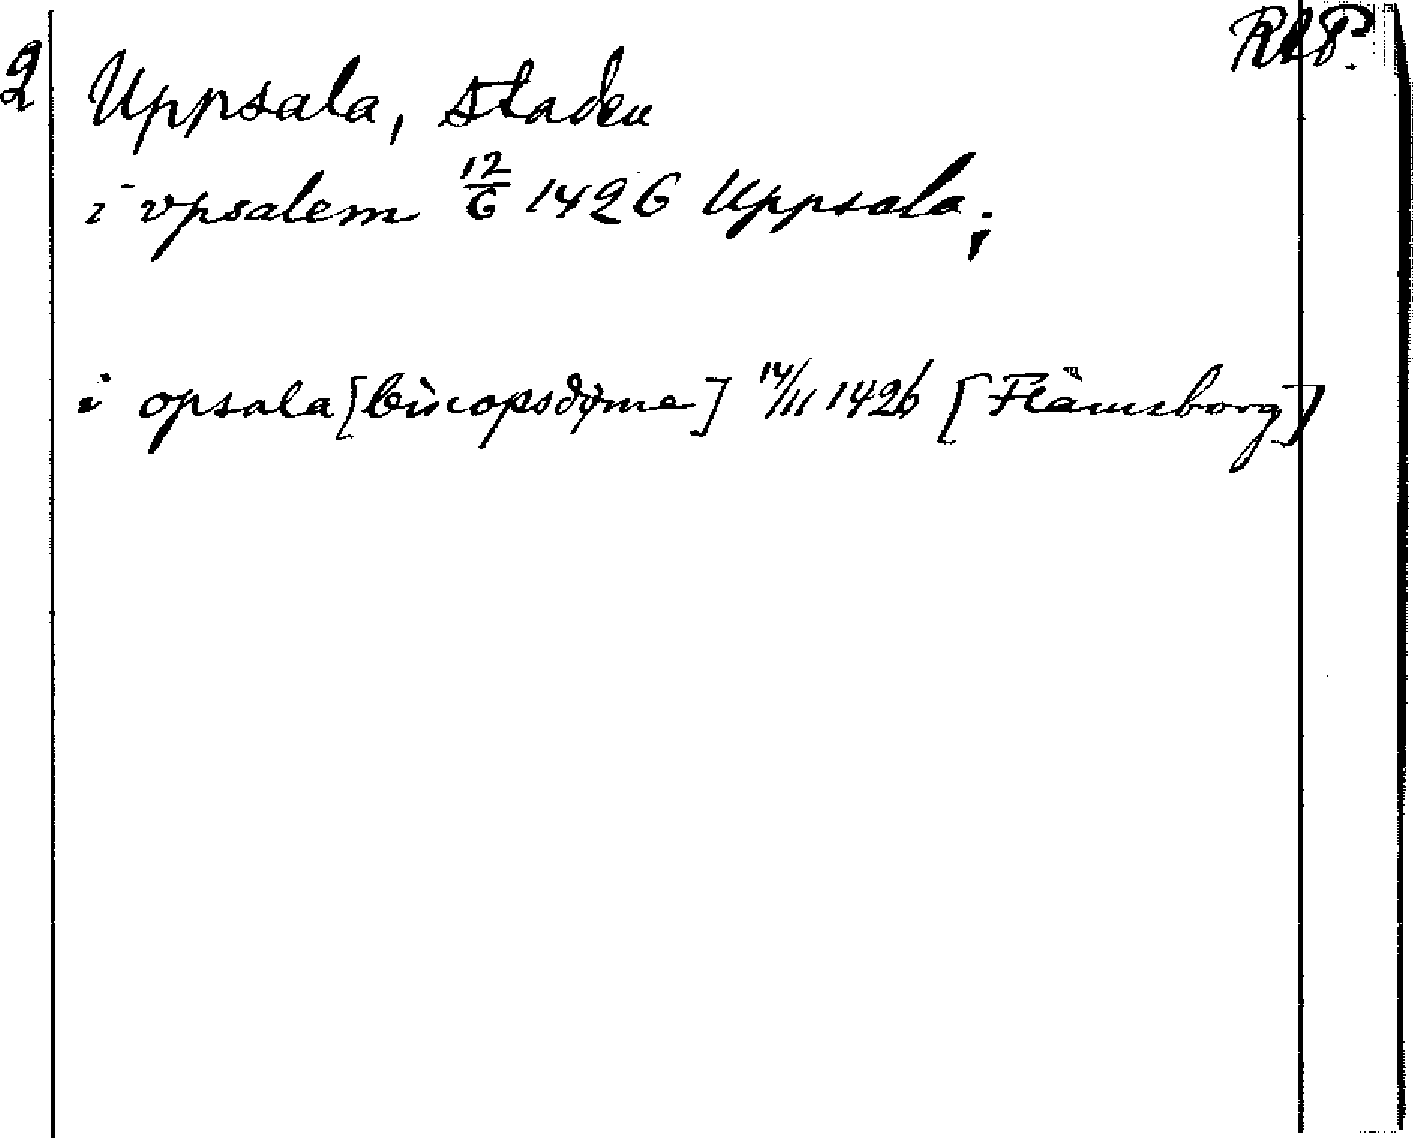 RAP.
2 Uppsala, staden
i vpsalem 12/6 1426 Uppsala;
i opsala [biscopsdøme] 14/11 1426 [Flänsborg]